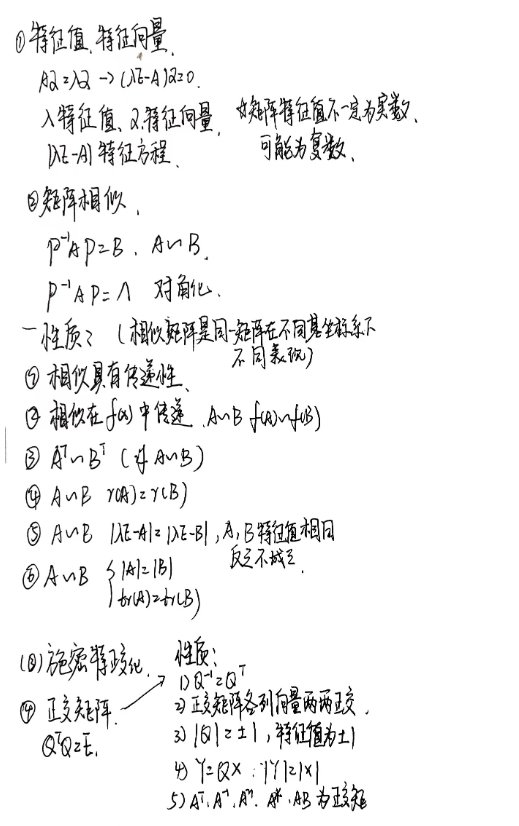 ①特征值、特征向量.
Aα=λα → (λE-A)α=0.
λ特征值、α特征向量. 如矩阵特征值不一定为实数,
|λE-A| 特征方程. 可能为复数.
②矩阵相似.
P⁻¹AP=B. A∽B.
P⁻¹AP=Λ 对角化.
一性质: (相似矩阵是同一矩阵在不同基坐标系下
不同表现)
① 相似具有传递性.
② 相似在f(x)中传递. A∽B f(A)∽f(B)
③ Aᵀ∽Bᵀ (if A∽B)
④ A∽B r(A)=r(B)
⑤ A∽B |λE-A|=|λE-B|, A, B特征值相同
反之不成立.
⑥ A∽B { |A|=|B|
tr(A)=tr(B)
(③)施密特正交化. 性质:
1) Q⁻¹=Qᵀ
④ 正交矩阵. 2) 正交矩阵各列向量两两正交.
QᵀQ=E. 3) |Q|=±1, 特征值为±1
4) Y=QX : |Y|=|X|
5) Aᵀ, A⁻¹, Aⁿ, A*, AB 为正交矩